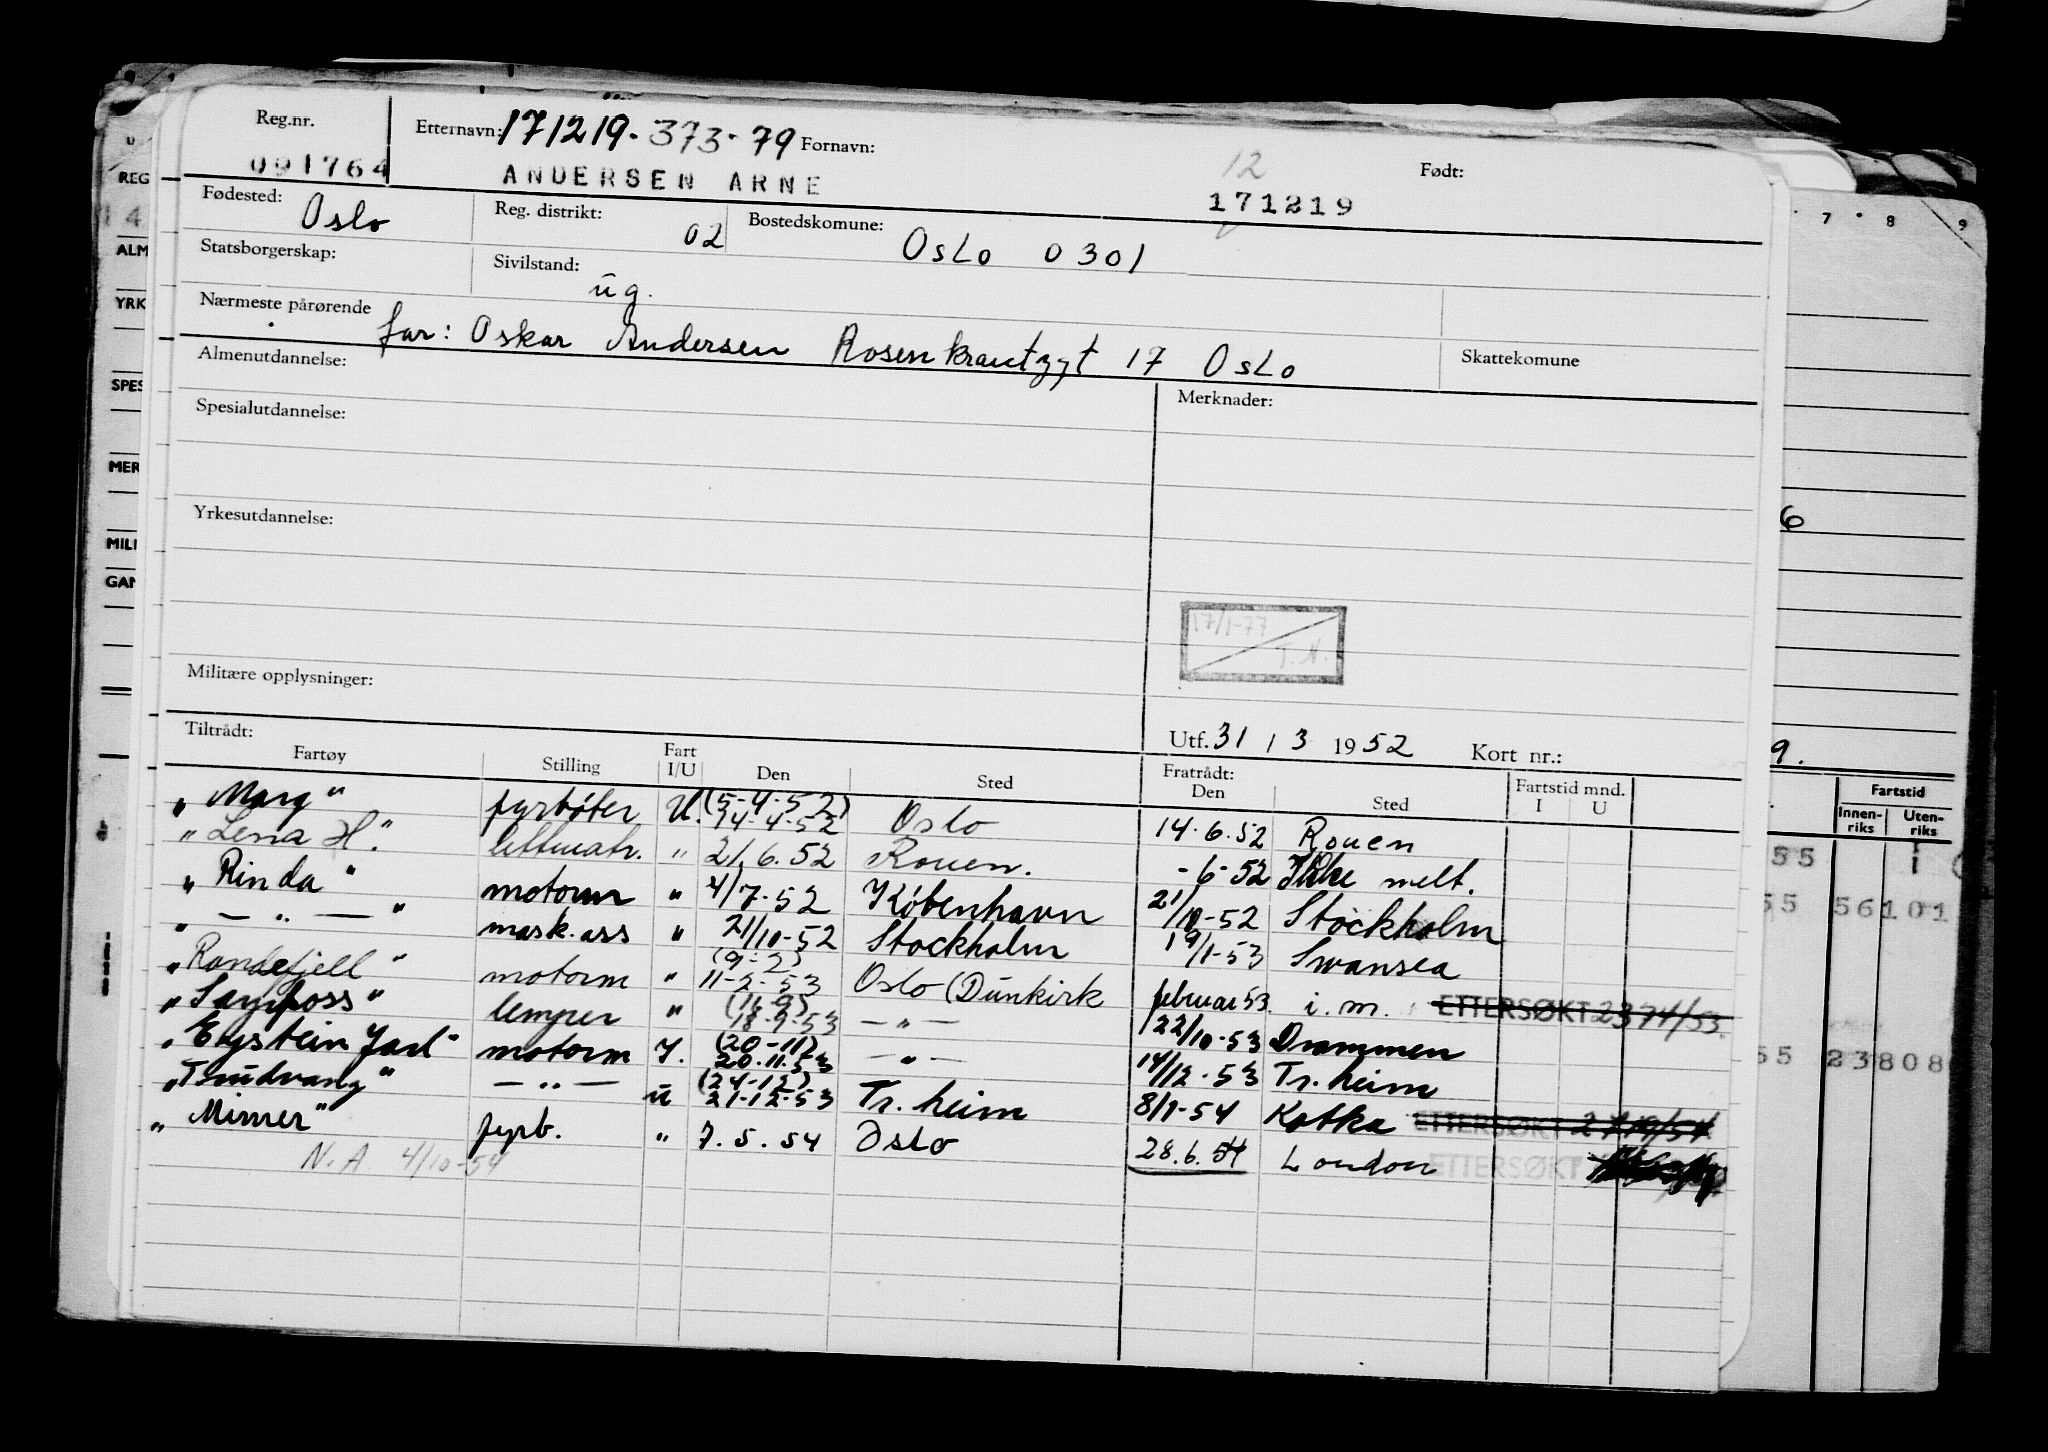 Reg.nr. Etternavn: 171219-373-79 Fornavn: 12 Født:
091764 ANDERSEN ARNE 171219
Fødested: Oslo Reg. distrikt: 02 Bostedskomune: Oslo 0301
Statsborgerskap: Sivilstand: ug.
Nærmeste pårørende far: Oskar Andersen Rosenkrantzgt 17 Oslo Skattekomune
Almenutdannelse:
Spesialutdannelse: Merknader:
Yrkesutdannelse:
17/1-77
T.N.
Militære opplysninger:
Tiltrådt: Utf. 31 / 3 1952 Kort nr.:
Fartøy Stilling Fart I/U Den Sted Fratrådt: Den Sted Fartstid mnd. I U
"Marg" fyrbøter U. (5-4-52) 14-4-52 Oslo 14.6.52 Rouen
"Lena H." lettmatr. " 21.6.52 Rouen. -6-52 Ikke melt.
"Rinda" motorm " 4/7-52 København 21/10-52 Stockholm
" — " — " mask.ass " 21/10-52 Stockholm 19/1-53 Swansea
"Rondefjell" motorm " (9-2) 11-2-53 Oslo (Dunkirk februar 53 i.m. ETTERSØKT
lemper " 18-9-53 — " — 22/10-53 Drammen
"Eystein Jarl" motorm I. (20-11) 20.11.53 — " — 14/12-53 Tr.heim
"Trudvang" — " — u (24-12) 21-12-53 Tr.heim 8/1-54 Kotka ETTERSØKT
"Mimer" fyrb. " 7.5.54 Oslo 28.6.54 London ETTERSØKT
N.A. 4/10-54
REG
4
ALM
YRK
SPES
MER
MILI
GAN
7 8 9
6
9.
Fartstid
Innenriks Utenriks
55
55 56101
55 23808